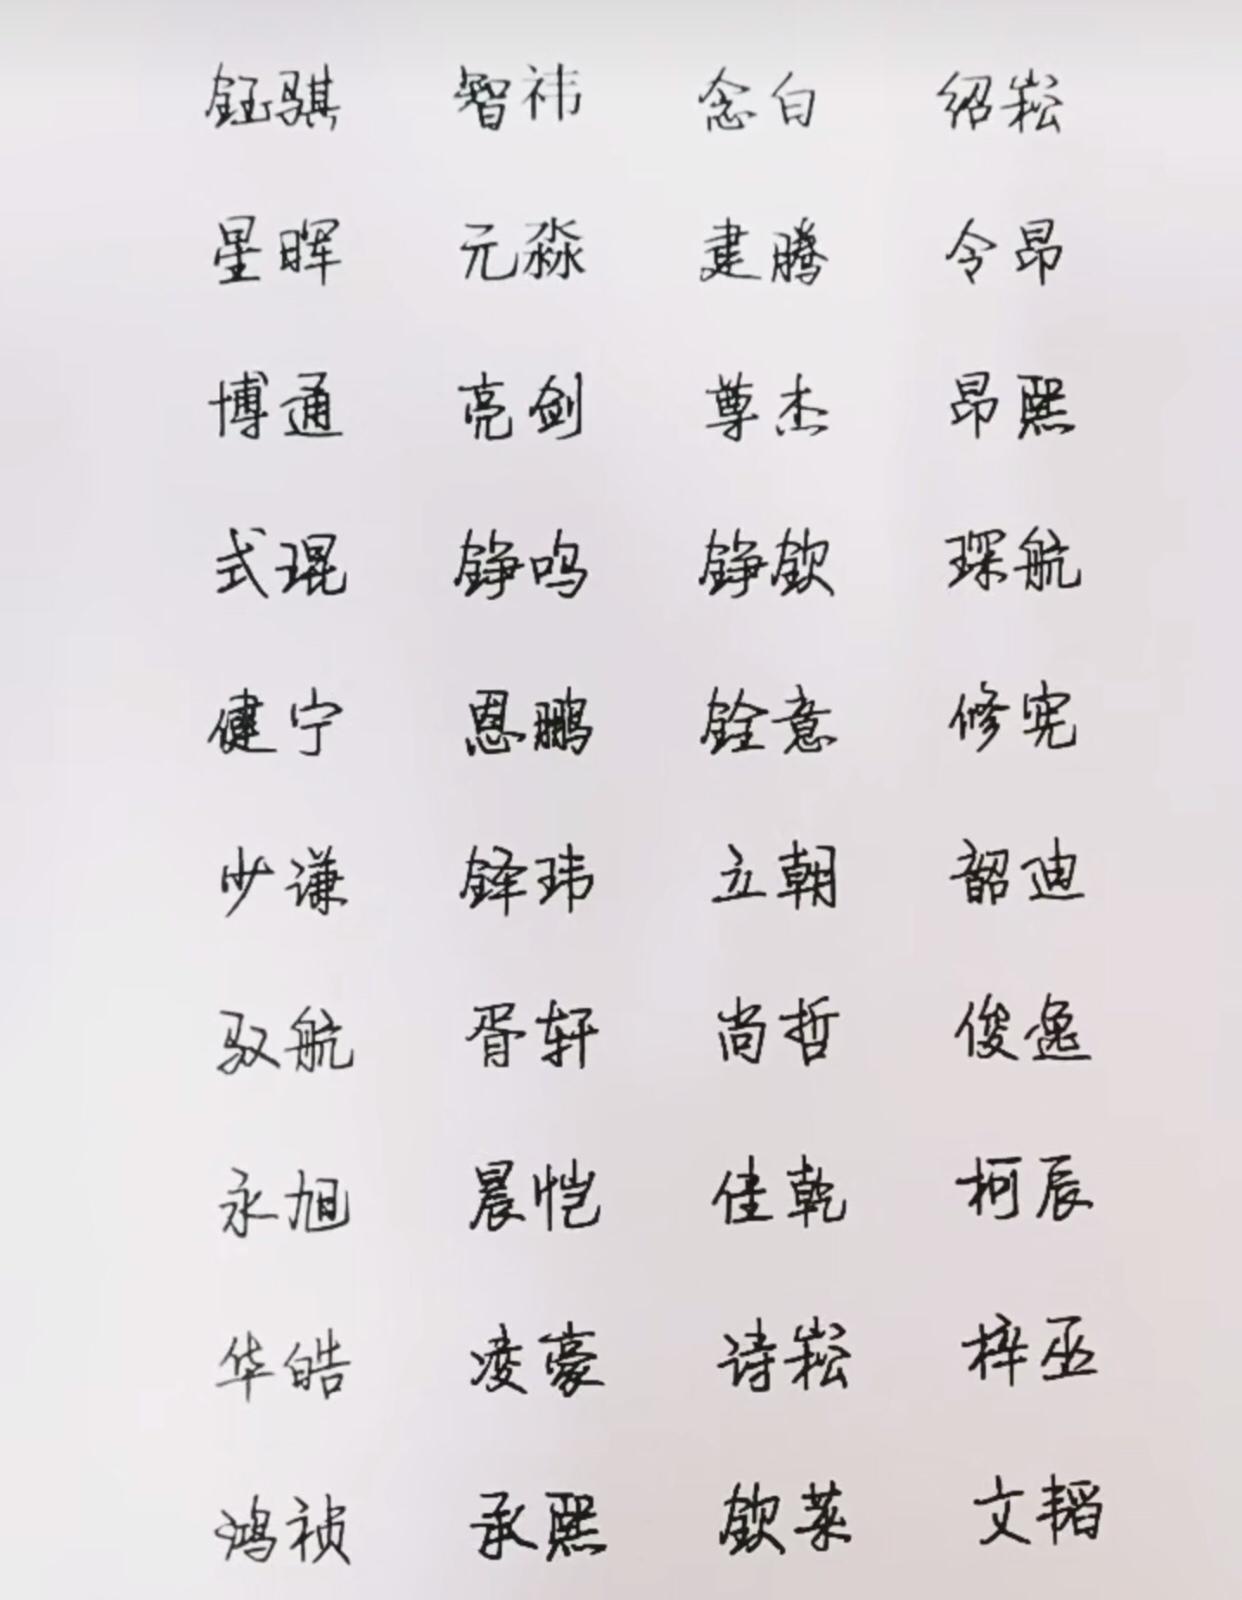 钰骐 智祎 念白 绍崧
星晖 元淼 建腾 令昂
博通 亮剑 尊杰 昂熙
式琨 铮鸣 铮钦 琛航
健宁 恩鹏 铨意 修宪
少谦 铎玮 立朝 韶迪
驭航 胥轩 尚哲 俊逸
永旭 晨恺 佳乾 柯辰
华皓 凌豪 诗崧 梓巫
鸿祯 承熙 钦莱 文韬